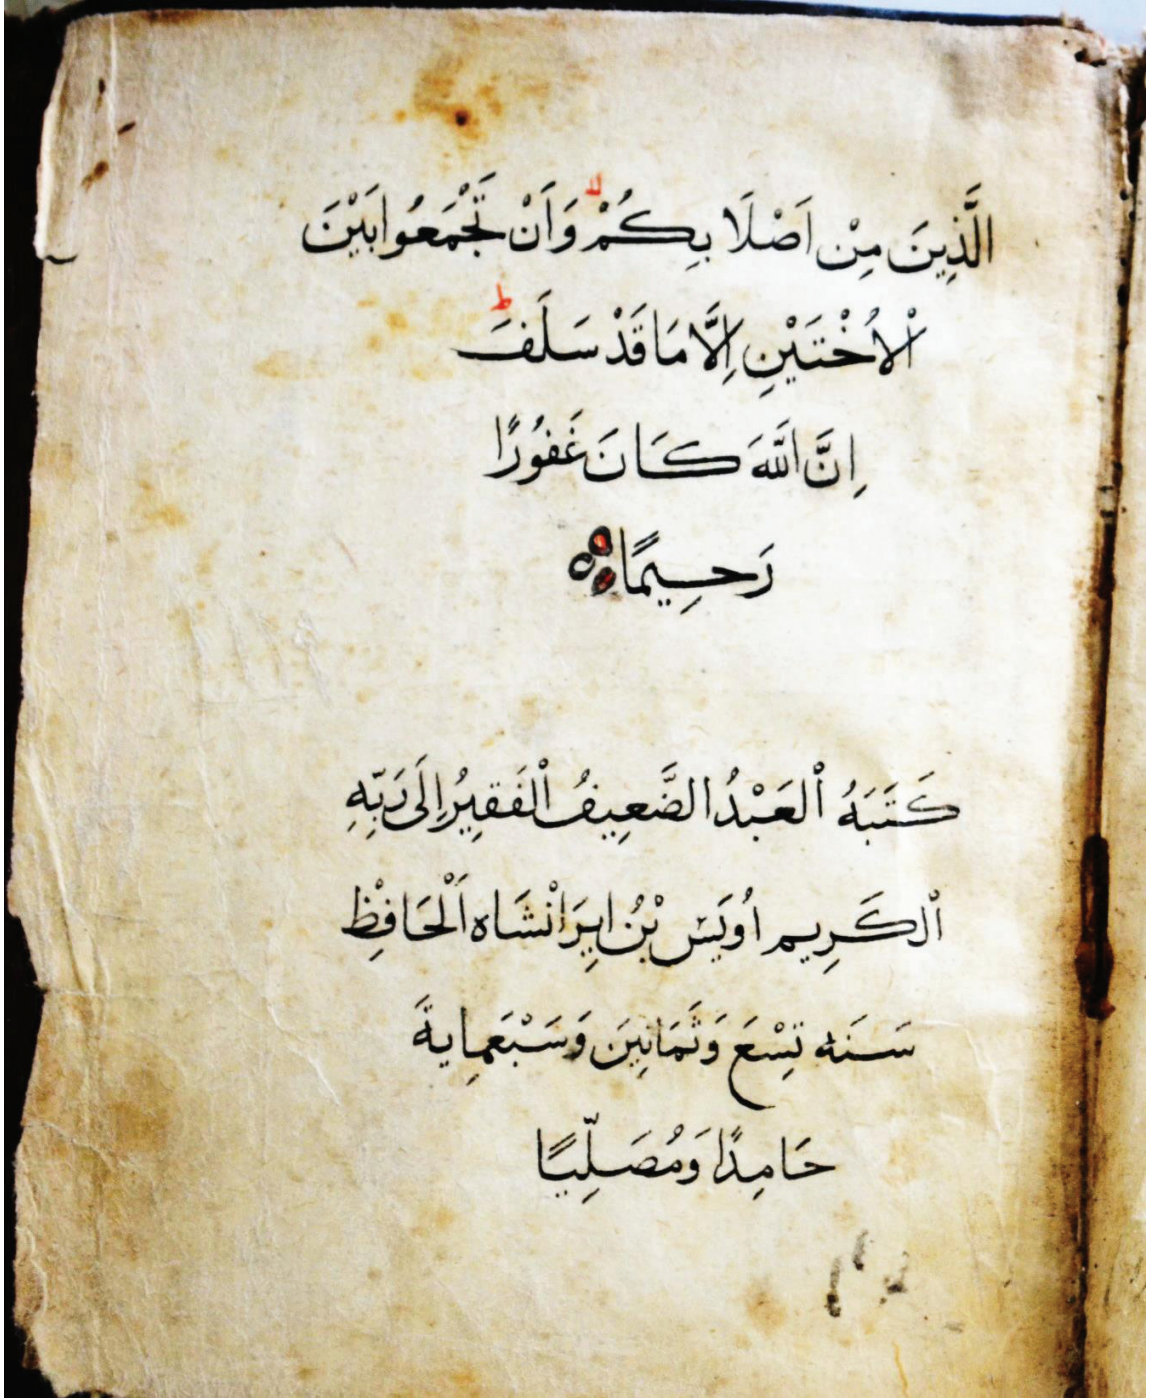 الَّذِينَ مِنْ اَصْلَابِكُمْ ۙ وَاَنْ تَجْمَعُوا بَيْنَ
الْاُخْتَيْنِ اِلَّا مَا قَدْ سَلَفَ ۗ
اِنَّ اللّٰهَ كَانَ غَفُورًا
رَحِيمًا
كَتَبَهُ الْعَبْدُ الضَّعِيفُ الْفَقِيرُ اِلَى رَبِّهِ
الْكَرِيمِ اُوَيَسْ بْنُ اِيرَانْشَاه اَلْحَافِظْ
سَنَه تِسْعَ وَثَمَانِينَ وَسَبْعَمِايةَ
حَامِدًا وَمُصَلِّيًا